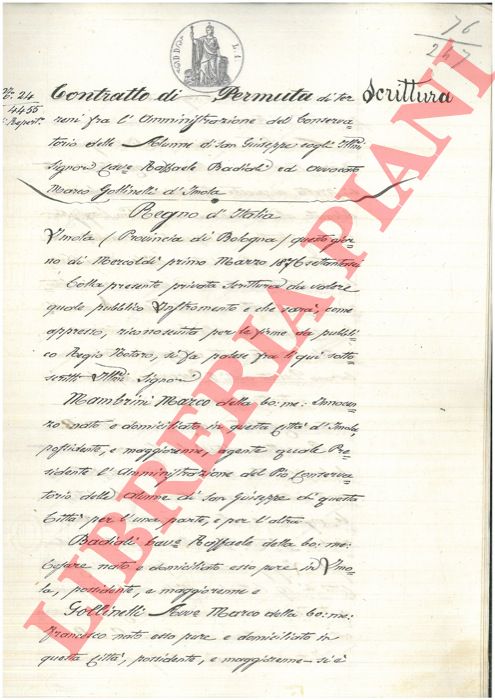 76
247
N.º 24
4455
Repert.
Contratto di Permuta di ter Scrittura
reni fra l'Amministrazione del Conserva=
torio delle Alunne di San Giuseppe e gli Illmi
Signori Cave Raffaele Badiali ed Avvocato
Marco Gollinelli d'Imola
Regno d'Italia
Imola (Provincia di Bologna) questo gior=
no di Mercoldì primo Marzo 1876 settantasei
Colla presente privata Scrittura da valere
quale pubblico Instromento e che sarà, come
appresso, riconosciuta per le firme da pubbli=
co Regio Notaro, si fa palese fra li qui sotto=
scritti Illmi Signori
Mambrini Marco della bo: me: Innocen=
zo nato e domiciliato in questa Città d'Imola,
possidente, e maggiorenne, agente quale Pre=
sidente l'Amministrazione del Pio Conserva=
torio delle Alunne di San Giuseppe di questa
Città per l'una parte, e per l'altra
Badiali Cave Raffaele della bo: me:
Cesare nato e domiciliato esso pure in Imo=
la, possidente, e maggiorenne e
Gollinelli Avve Marco della bo: me:
Francesco nato esso pure e domiciliato in
questa Città, possidente, e maggiorenne = si è
LIBRERIA PIANI